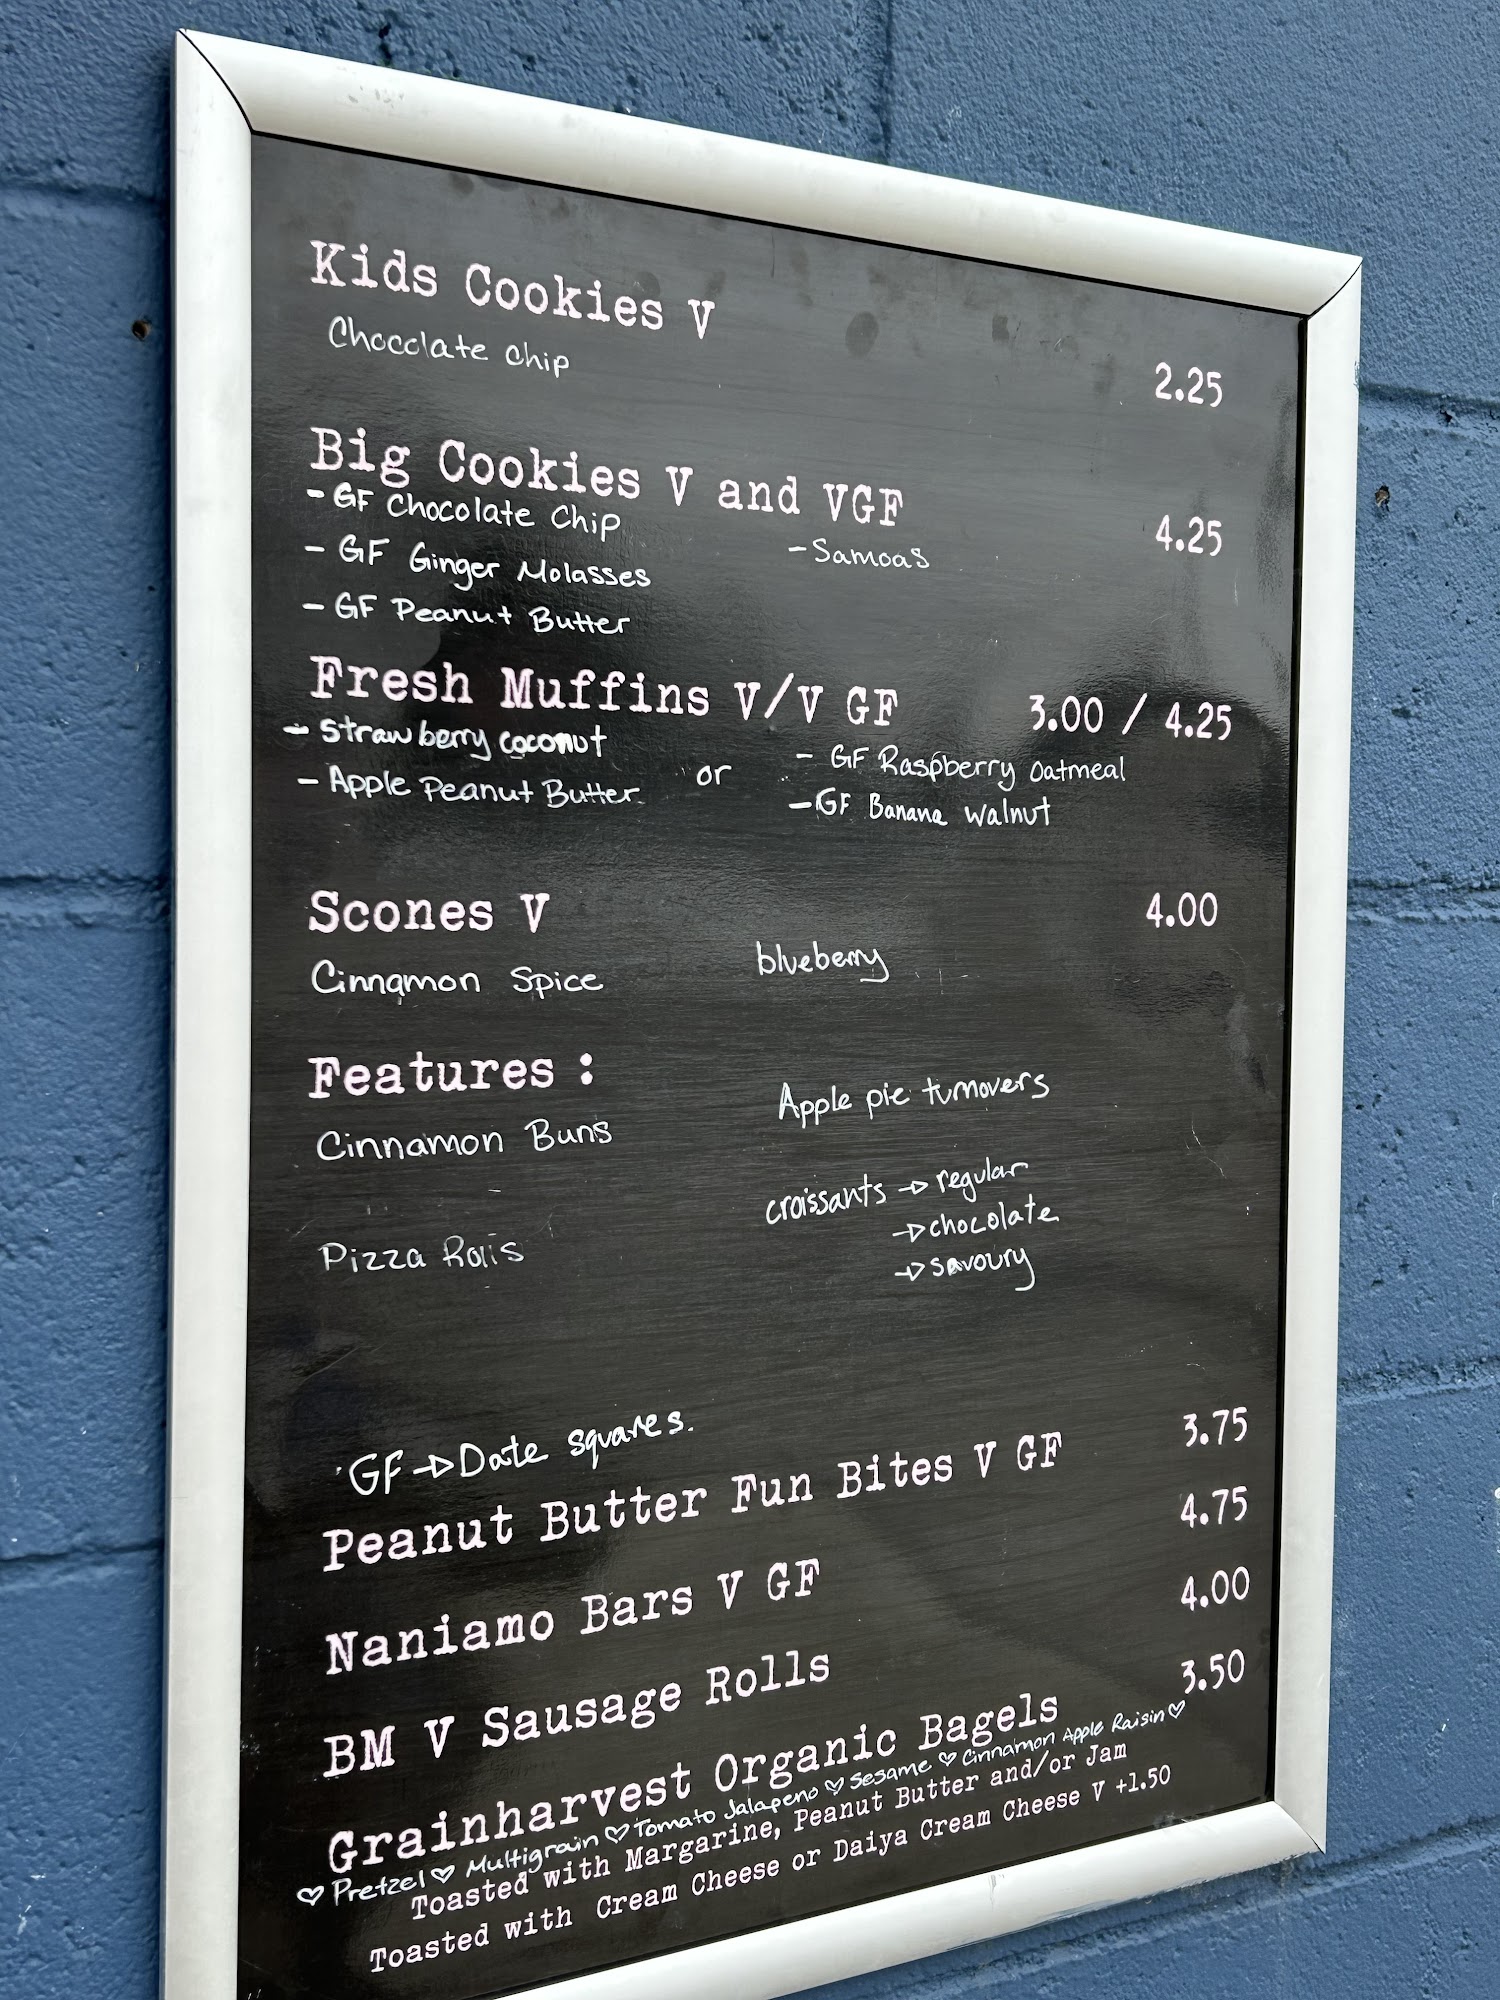 Kids Cookies V
Chocolate chip
2.25
Big Cookies V and VGF
4.25
- GF Chocolate Chip
- Samoas
- GF Ginger Molasses
- GF Peanut Butter
Fresh Muffins V/V GF
3.00 / 4.25
- Strawberry coconut
- GF Raspberry Oatmeal
- Apple Peanut Butter
or
- GF Banana Walnut
Scones V
4.00
Cinnamon Spice
blueberry
Features :
Apple pie turnovers
Cinnamon Buns
croissants → regular
→ chocolate
→ savoury
Pizza Rolls
GF → Date squares.
Peanut Butter Fun Bites V GF
3.75
Naniamo Bars V GF
4.75
BM V Sausage Rolls
4.00
Grainharvest Organic Bagels
3.50
♡ Pretzel ♡ Multigrain ♡ Tomato Jalapeno ♡ Sesame ♡ Cinnamon Apple Raisin ♡
Toasted with Margarine, Peanut Butter and/or Jam
Toasted with Cream Cheese or Daiya Cream Cheese V +1.50